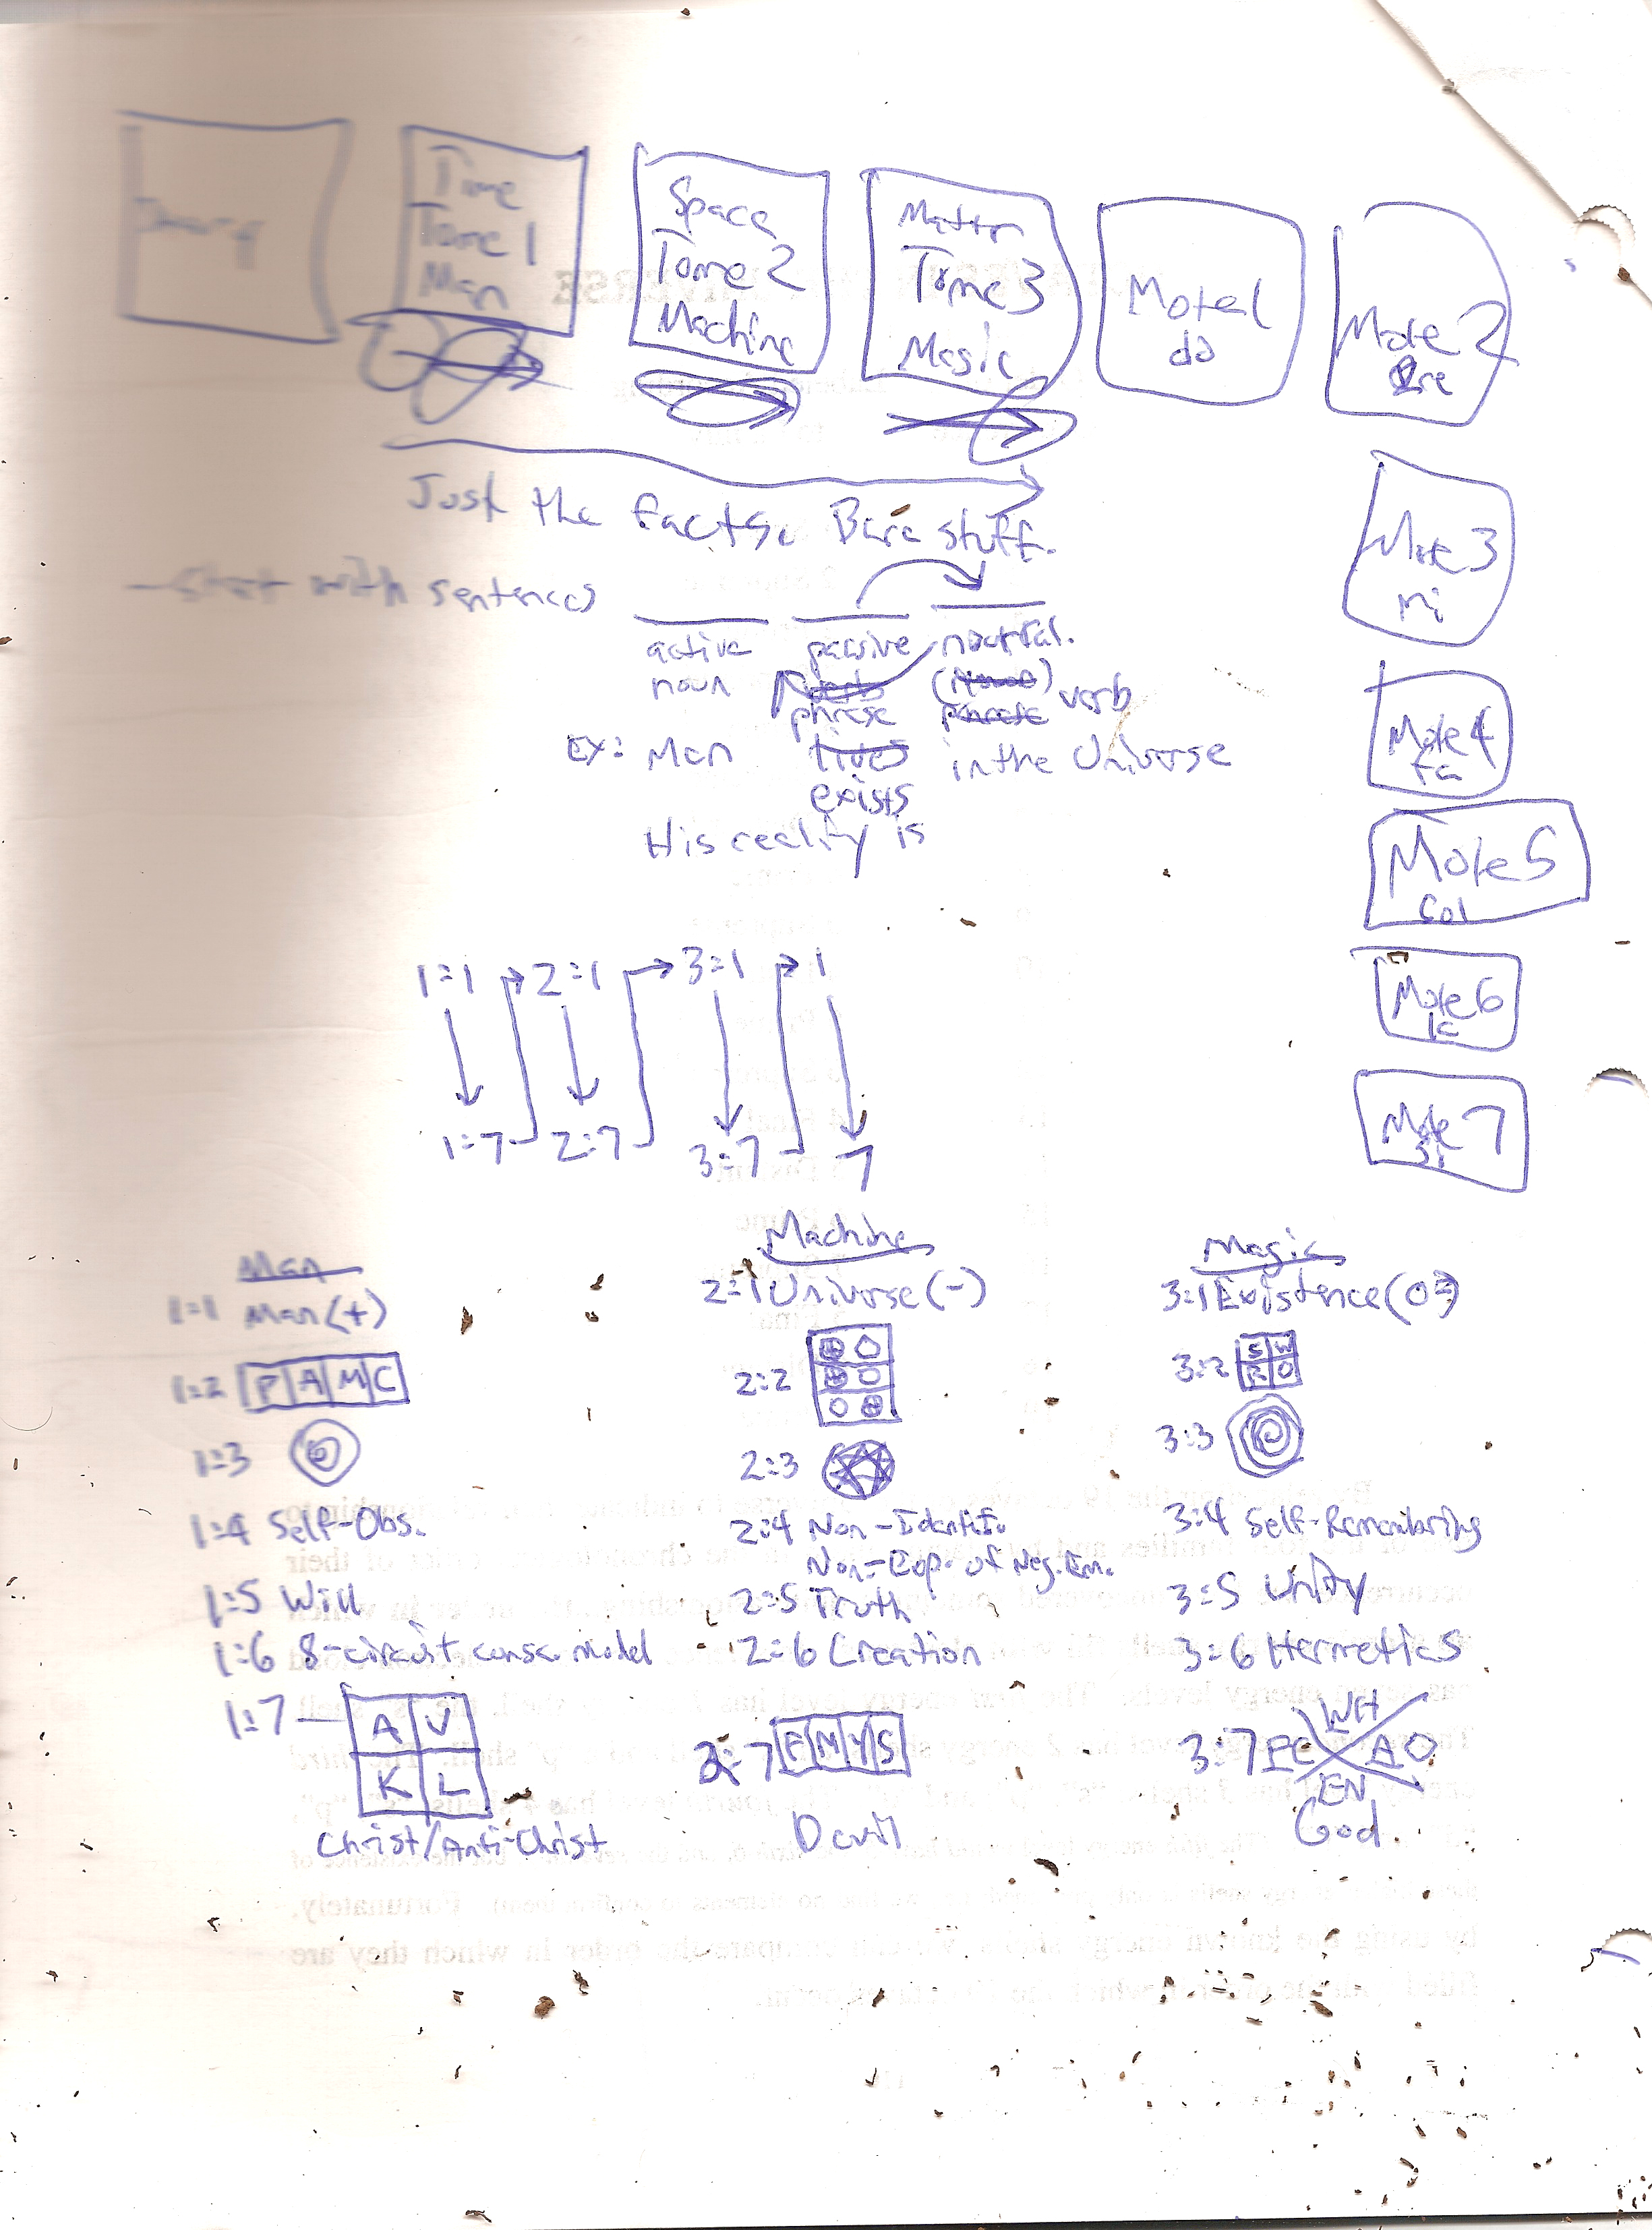 Time
Tome 1
Man
Space
Tome 2
Machine
Matter
Tome 3
Magic
Mote 1
do
Mote 2
re
Just the facts. Bare stuff.
Mote 3
mi
- Start with sentences
active passive neutral.
noun phrase verb
Mote 4
fa
Ex: Man lives in the Universe
exists
His reality is
Mote 5
sol
1:1 2:1 3:1 1
Mote 6
la
1:7 2:7 3:7 7
Mote 7
si
Man
1:1 Man (+)
1:2 P A M C
1:3
1:4 Self-Obs.
1:5 Will
1:6 8-circuit consc. model
1:7 A V
K L
Christ/Anti-Christ
Machine
2:1 Universe (-)
2:2
2:3
2:4 Non-Identif.
Non-Exp. of Neg. Em.
2:5 Truth
2:6 Creation
2:7 F M Y S
Devil
Magic
3:1 Existence
3:2 S W
R O
3:3
3:4 Self-Remembering
3:5 Unity
3:6 Hermetics
3:7 WH
AO
EN
God.